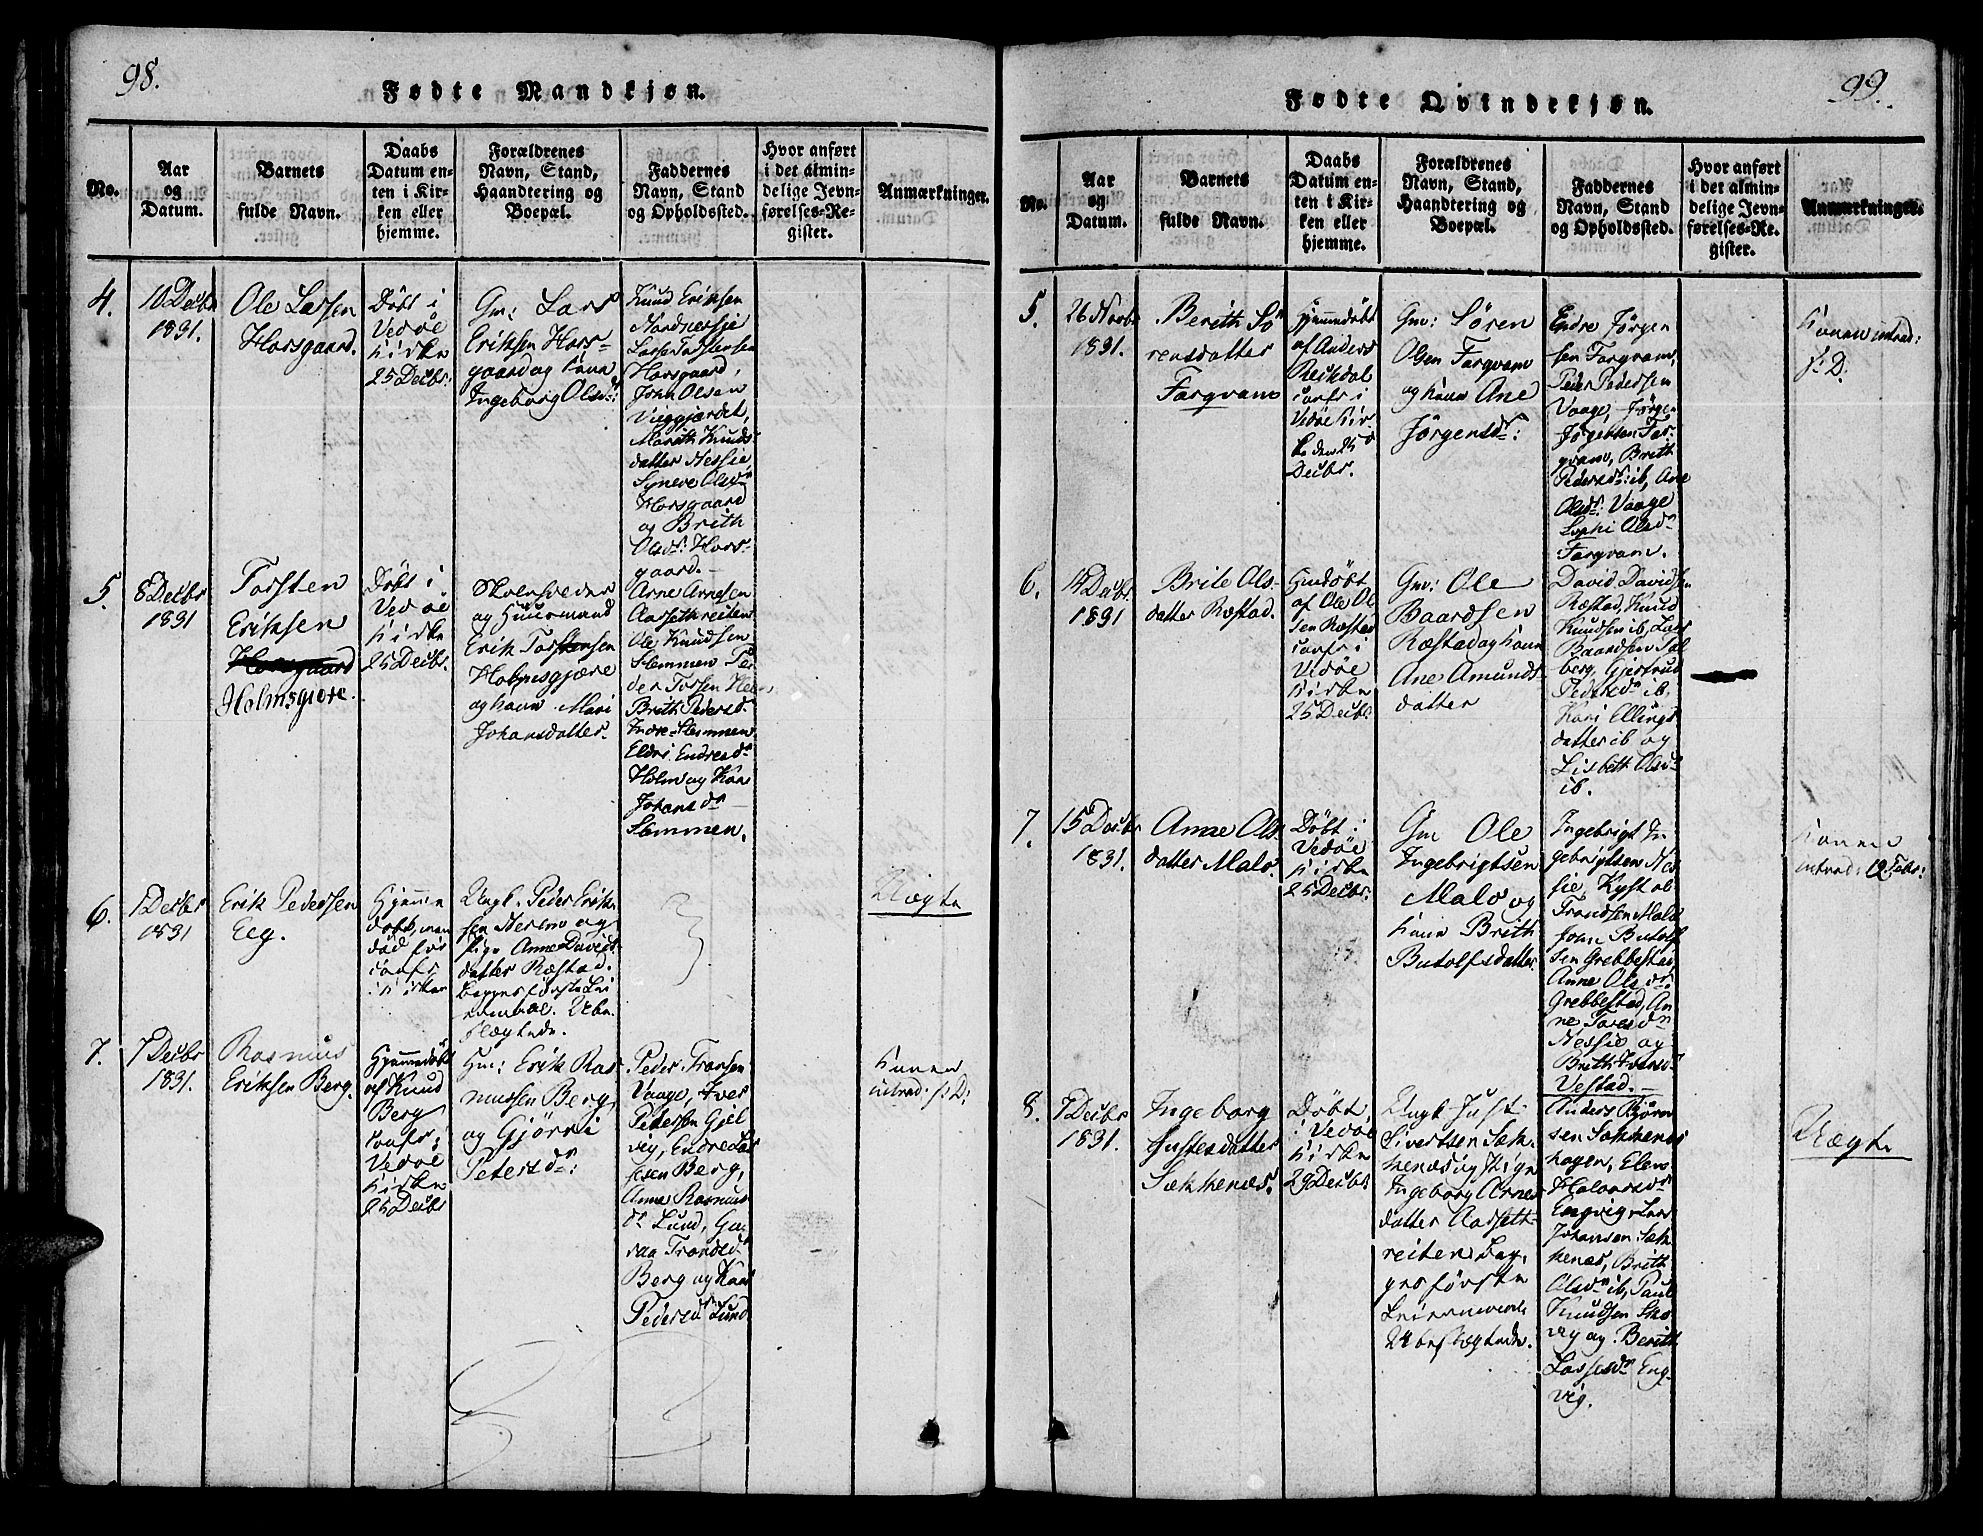 98.
Fødte Mandkjøn.
No.
Aar
og
Datum.
Barnets
fulde Navn.
Daabs
Datum en-
ten i Kir-
ken eller
hjemme.
Forældrenes
Navn, Stand,
Haandtering og
Boepæl.
Faddernes
Navn, Stand
og Opholdssted.
Hvor anført
i det almin-
delige Jevn-
førelses-Re-
gister.
Anmærkninger.
4.
10 Decbr
1831.
Ole Larsen
Horsgaard.
Døbt i
Vedøe
Kirke
25 Decbr.
Gm: Lars
Eriksen Hors-
gaard og Kone
Ingeborg Olsd:
Knud Eriksen
Larsen Torstensen
Horsgaard,
John Olsen
Marith Knuds-
datter Nessie,
Synneve Olsd
Horsgaard
og Brith
Olsdr: Hors-
gaard.
5.
8 Decbr
1831
Torsten
Eriksen
Horsgaard
Holmsgjere.
Døbt i
Vedøe
Kirke
25 Decbr.
og Huusmand
Erik Torstensen
Holmsgjære
og Kone Mari
Johansdatter
Arne Arnesen
Aarsethreiten
Ole Knudsen
Slemmen Pe-
der Torsen
Brith Pedersd.
Indre-Slemmen
Eldri Endresdr
Holm og Kari
Johansdr
Slemmen.
6.
1 Decbr
1831
Erik Pedersen
Eeg.
Hjemme
døbt, men
død før
Confr
i Kirken
Ungk. Peder Erik-
sen og
Pige Anne Davids-
datter Ræstad.
Begges første Lei-
ermaal. Ube-
slægtede.
Uægte
7.
7 Decbr
1831.
Rasmus
Eriksen Berg.
Hjemmedøbt
af Knud
Berg
Confr i
Vedøe
Kirke
25 Decbr
Gm: Erik Ras-
mussen Berg
og Gjørri
Petersdr:
Peder Transen
Vaage, Iver
Pedersen Gjel-
vig, Endre Lar-
sen Berg,
Anne Rasmus-
dr Lund, Gu-
Berg og Kari
Pedersdr Lund
Konen
introd: s: D:
99.
Fødte Qvindekjøn.
No.
Aar
og
Datum.
Barnets
fulde Navn.
Daabs
Datum en-
ten i Kir-
ken eller
hjemme.
Forældrenes
Navn, Stand,
Haandtering og
Boepæl.
Faddernes
Navn, Stand
og Opholdssted.
Hvor anført
i det almin-
delige Jevn-
førelses-Re-
gister.
Anmærkninger.
5.
26 Novbr
1831.
Berith Sö-
rensdatter
Fargvam
Hjemmedøbt
af Anders
Confr i
Vedøe Kir-
ke den 25
Decbr.
Gm: Sören
Olsen Fargvam
og Kone Ane
Jörgensdr:
Endre Jörgen-
sen Fargvam,
Peder Pedersen
Vaage, Jörgen
Jörgensen Far-
gvam, Brith
Pedersdr: ib, Ane
Olsdr: Vaage
Sophi Olsdr
Fargvam.
Konen introd:
s: D.
6.
14 Decbr.
1831
Brite Ols-
datter Ræstad.
af Ole Ol-
sen Ræstad
Confr i
Vedøe
Kirke
25 Decbr
Gm: Ole
Baardsen
Ræstad og Kone
Ane Amunds-
datter
David Davidsen
Ræstad, Knud
Knudsen ib, Lars
Baardsen Sol-
berg, Gjertrud
Pedersdr ib,
Kari Ellings-
datter ib og
Lisbeth Olsdr
ib.
7.
15 Decbr
1831.
Anne Ols-
datter Malo.
Døbt i
Vedøe
Kirke
25 Decbr.
Gm Ole
Ingebrigtsen
Malo og
Kone Brith
Butolfsdatter
Ingebrigt In-
gebrigtsen Nes-
sie,
Frandsen Malo
John Butolf-
sen Grebbestad
Anne Olsdr:
Grebbestad, An-
ne Toresdr
Nessie og
Brith Iversdr
Vestad.
Konen
introd: 12 Febr:
8.
7 Decbr
1831.
Ingeborg
Justesdatter
Sækkenæs.
Døbt
i Vedøe
Kirke
29 Decbr.
Ungk Just
Sivertsen Sæk-
kenæs og Pige
Ingeborg Arnes-
datter Aarseth-
reiten Beg-
ges første
Leiermaal.
Ubeslægtede.
Anders Bjørn-
sen Sækkenæs-
hagen, Elen
Halvorsdr
Engvig, Lars
Johansen Sæk-
kenæs, Brith
Olsdr ib, Paul
Knudsen Sko-
vig og Berith
Larsesdr Eng-
vig.
Uægte